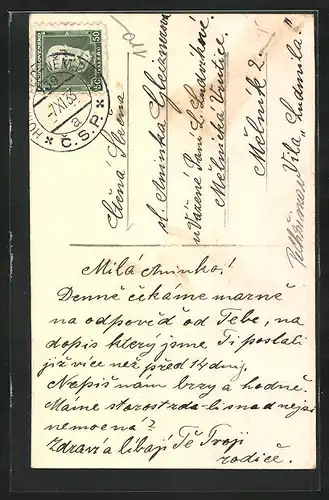 Milá Aninko!
Denně čekáme marně
na odpověď od Tebe, na
dopis který jsme Ti poslali
již více než před 14 dny.
Nepiš nám brzy a hodně.
Máme starost zda-li snad nejsi
nemocná?
Zdraví a líbají Tě Tvoji
rodiče.
Ctěná Slečna
sl. Aninka
u Vážené Paní L.
Mělnická Vrutice
Mělník 2.
Vila „Ludmila“
ČESKOSLOVENSKO
50 50
-7.XI.35
Č.S.P.